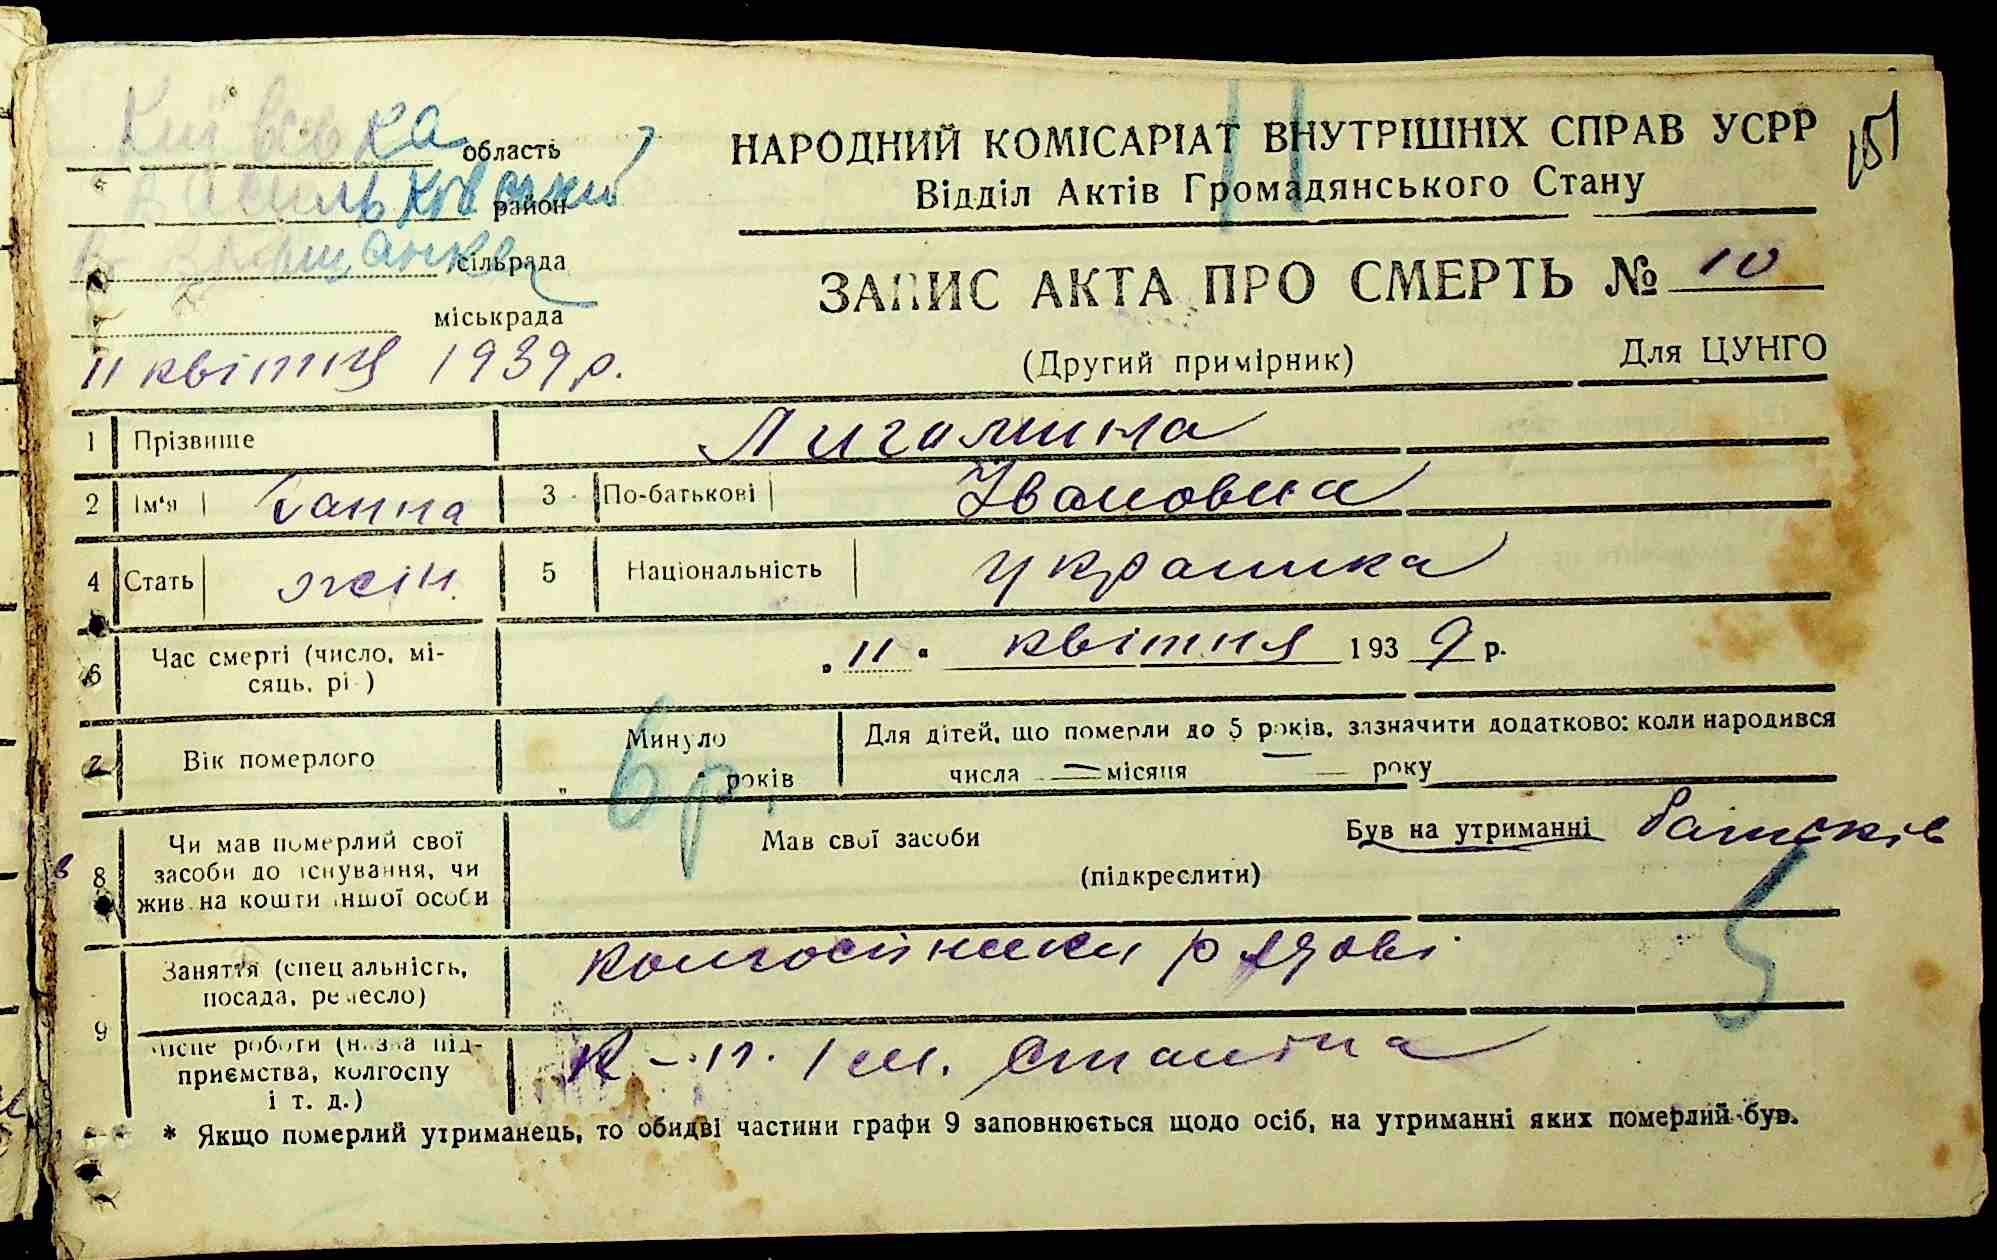 Київська область
Васильковський район
сільрада
міськрада
11 квітня 1939 р.
151
НАРОДНИЙ КОМІСАРІАТ ВНУТРІШНІХ СПРАВ УСРР
Відділ Актів Громадянського Стану
ЗАПИС АКТА ПРО СМЕРТЬ № 10
(Другий примірник) Для ЦУНГО
1 Прізвище Лигомина
2 Ім'я Ганна 3 По-батькові Івановна
4 Стать жін. 5 Національність українка
6 Час смерті (число, мі-
сяць, рі ) „11“ квітня 1939 р.
7 Вік померлого Минуло 6 р. років
Для дітей, що померли до 5 років, зазначити додатково: коли народився
числа — місяця — року
8 Чи мав померлий свої
засоби до існування, чи
жив на кошти іншої особи
Мав свої засоби Був на утриманні батьків
(підкреслити)
9 Заняття (спеціальність,
посада, ремесло) колгоспники рядові
місце роботи (назва під-
приємства, колгоспу
і т. д.) к-п. ім. Сталіна
* Якщо померлий утриманець, то обидві частини графи 9 заповнюється щодо осіб, на утриманні яких померлий був.